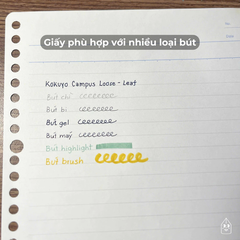 Giấy phù hợp với nhiều loại bút
Kokuyo Campus Loose - Leaf
Bút chì eeeeeee
Bút bi eeeeeee
Bút gel eeeeeee
Bút máy eeeeeee
Bút highlight
Bút brush eeeeee